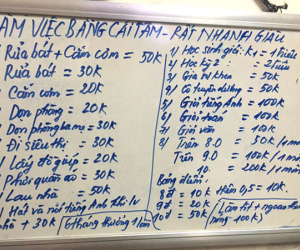 LÀM VIỆC BẰNG CÁI TÂM - RẤT NHANH GIÀU
Rửa bát + Cắm cơm = 50K
Rửa bát = 30K
Cắm cơm = 20K
Dọn phòng = 20K
Dọn phòng ba mẹ = 30K
Đi siêu thị = 30K
Lấy đồ giúp = 20K
Phơi quần áo = 30K
Lau nhà = 50K
Hát và nói tiếng Anh
+ 30K / 6 tháng thưởng 1 lần
1/ Học sinh giỏi: K1 = 1 triệu
2/ Học kỳ 2 = 2 triệu
3/ Gia sư khen = 50K
4/ Cô tuyên dương = 50K
5/ Giỏi tiếng Anh = 100K
6/ Giỏi toán = 100K
7/ Giỏi văn = 100K
8/ Trên 8.0 = 30K
Trên 9.0 = 100K
10. = 200K
Bảng điểm:
8đ = 10K
9đ = 20K
10đ = 50K
Hơn 0,5 = 10K
Làm tốt + ngoan
100K